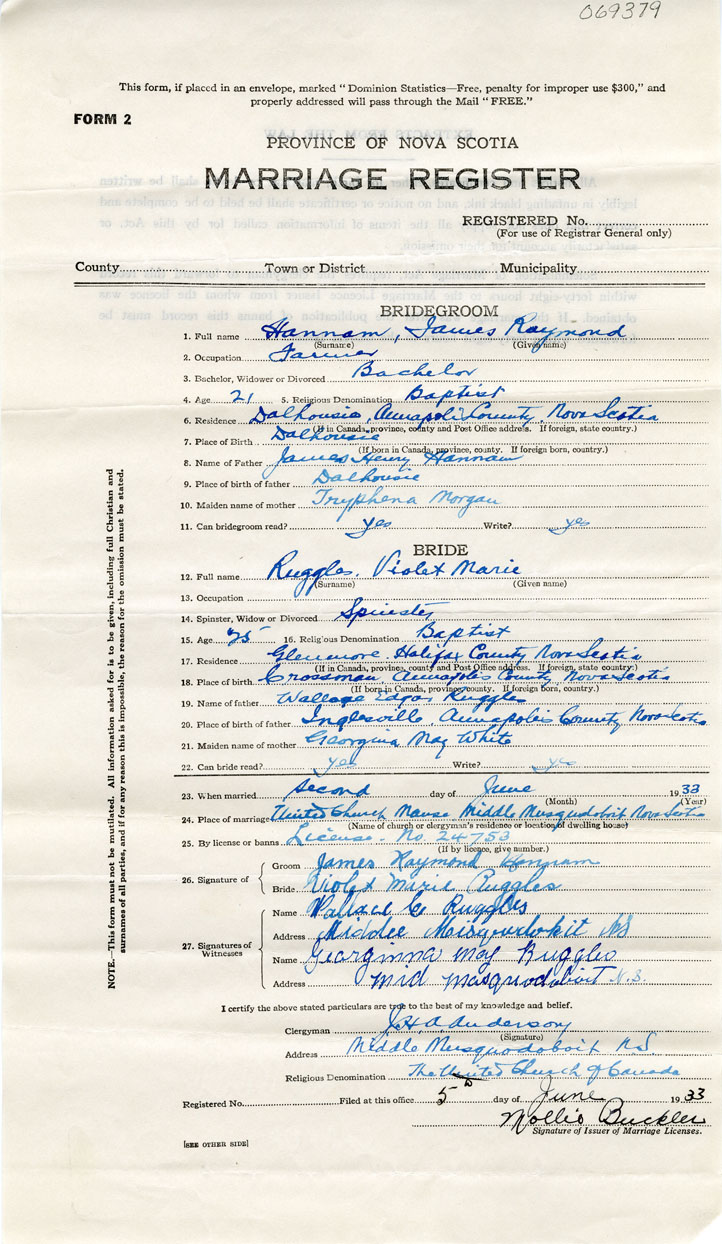 069379
This form, if placed in an envelope, marked "Dominion Statistics—Free, penalty for improper use $300," and
properly addressed will pass through the Mail "FREE."
FORM 2
PROVINCE OF NOVA SCOTIA
MARRIAGE REGISTER
REGISTERED No.
(For use of Registrar General only)
County Town or District Municipality
BRIDEGROOM
1. Full name Hannam, James Raymond
(Surname) (Given name)
2. Occupation Farmer
3. Bachelor, Widower or Divorced Bachelor
4. Age 21 5. Religious Denomination Baptist
6. Residence Dalhousie, Annapolis County, Nova Scotia
(If in Canada, province, county and Post Office address. If foreign, state country.)
7. Place of Birth Dalhousie
(If born in Canada, province, county. If foreign born, country.)
8. Name of Father James Henry Hannam
9. Place of birth of father Dalhousie
10. Maiden name of mother Tryphena Morgan
11. Can bridegroom read? yes Write? yes
BRIDE
12. Full name Ruggles. Violet Marie
(Surname) (Given name)
13. Occupation
14. Spinster, Widow or Divorced Spinster
15. Age 25 16. Religious Denomination Baptist
17. Residence Glenmore. Halifax County Nova Scotia
(If in Canada, province, county and Post Office address. If foreign, state country.)
18. Place of birth Crossman, Annapolis County, Nova Scotia
(If born in Canada, province, county. If foreign born, country.)
19. Name of father Wallace Edgar Ruggles
20. Place of birth of father Inglesville, Annapolis County Nova Scotia
21. Maiden name of mother Georgina May White
22. Can bride read? yes Write? yes
23. When married Second day of June 1933
(Month) (Year)
24. Place of marriage United Church Manse Middle Musquodoboit Nova Scotia
(Name of church or clergyman's residence or location of dwelling house)
25. By license or banns License. No. 24753
(If by licence, give number.)
26. Signature of
Groom James Raymond Hannam
Bride Violet Marie Ruggles
27. Signatures of Witnesses
Name Wallace E Ruggles
Address Middle Musquodoboit NS
Name Georginna May Ruggles
Address Mid Masquodoboit N.S.
I certify the above stated particulars are true to the best of my knowledge and belief.
Clergyman J.H.A. Anderson
(Signature)
Address Middle Musquodoboit N.S.
Religious Denomination The United Church of Canada
Registered No. Filed at this office 5th day of June 1933
Mollie Buckler
Signature of Issuer of Marriage Licenses.
[SEE OTHER SIDE]
NOTE.—This form must not be mutilated. All information asked for is to be given, including full Christian and
surnames of all parties, and if for any reason this is impossible, the reason for the omission must be stated.